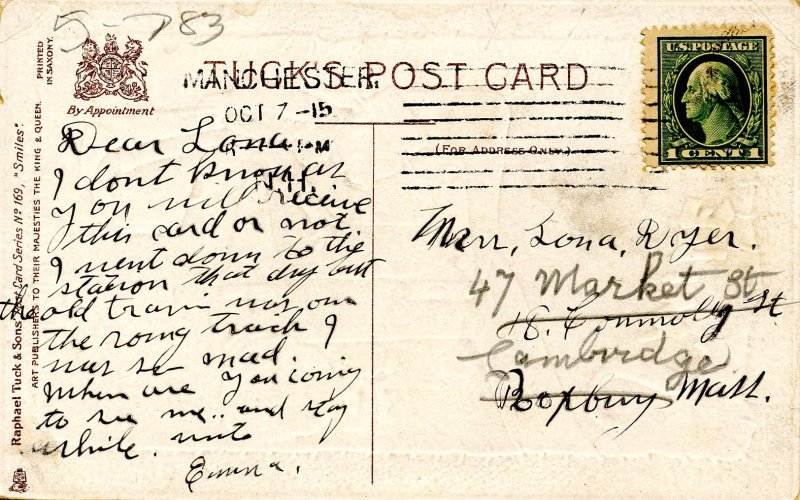 5-783
PRINTED
IN SAXONY.
By Appointment
Raphael Tuck & Sons' Post Card Series Nº 169, "Smiles".
ART PUBLISHERS TO THEIR MAJESTIES THE KING & QUEEN.
TUCK'S POST CARD
MANCHESTER.
OCT 7 -15
-PM
N.H.
(FOR ADDRESS ONLY.)
U.S. POSTAGE
1 CENT 1
Dear Lona
I dont know as
you will receive
this card or not
I went down to the
station that day but
the old train was on
the rong track I
was so mad.
When are you coming
to see me.. and stay
while. write
Emma.
Lona, Ryer.
47 Market St
18. Connolly St
Cambridge
Roxbury Mass.